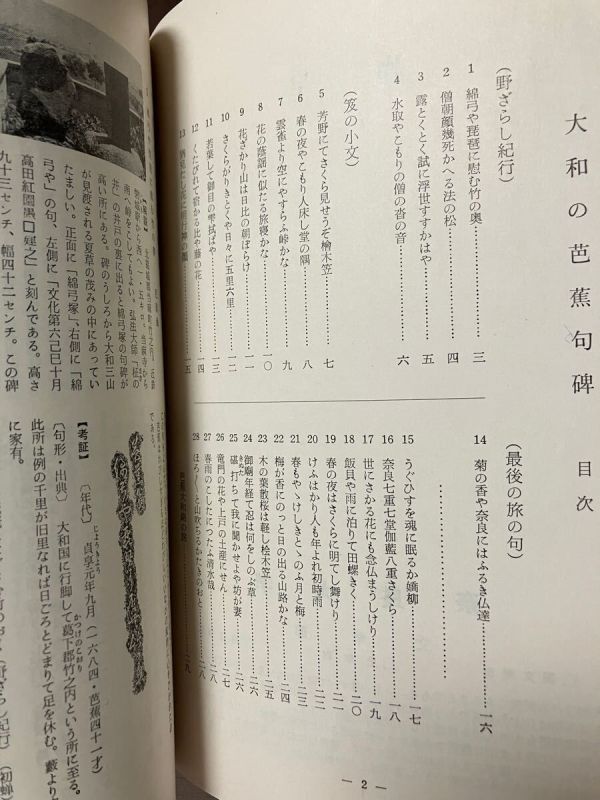 大和の芭蕉句碑　目次
(野ざらし紀行)
1 綿弓や琵琶に慰む竹の奥……三
2 僧朝顔幾死かへる法の松……四
3 露とくとく試に浮世すすかばや……五
4 水取やこもりの僧の沓の音……六
(笈の小文)
5 芳野にてさくら見せうぞ檜木笠……七
6 春の夜やこもり人床し堂の隅……八
7 雲雀より空にやすらふ峠かな……九
8 花の蔭謡に似たる旅寝かな……一〇
9 花ざかり山は日比の朝ぼらけ……一一
10 さくらがりきとくや日々に五里六里……一二
11 若葉して御目の雫拭ばや……一三
12 くたびれて宿かる比や藤の花……一四
13……一五
(最後の旅の句)
14 菊の香や奈良にはふるき仏達……一六
15 うぐひすを魂に眠るか嬌柳……一七
16 奈良七重七堂伽藍八重さくら……一八
17 世にさかる花にも念仏まうしけり……一九
18 飯貝や雨に泊りて田螺きく……二〇
19 春の夜はさくらに明てしまひけり
20 けふばかり人も年よれ初時雨……二二
21 春もやゝけしきとゝのふ月と梅……二三
22 梅が香にのっと日の出る山路かな……二四
23 木の葉散桜は軽し桧木笠……二五
24 御廟年経て忍は何をしのぶ草……二六
25 碪打ちて我に聞かせよや坊が妻……二六
26 竜門の花や上戸の土産にせん……二七
27 春雨のこしたにつたふ清水哉……二八
28 ほろ〳〵と山吹ちるか滝のおと……二九
— 2 —
南へ入
芹」の井戸の裏に出ると綿弓塚の句碑が
高い所にある。碑のうしろから大和三山
が見渡される夏草の茂みの中にあってい
たましい。正面に「綿弓塚」、右側に「綿
弓や」の句、左側に「文化第六己巳十月
高田紅園
建之」と刻んである。高さ
九十三センチ、幅四十二センチ。この碑
である。
【考証】
〔年代〕 貞享元年九月(一六八四・芭蕉四十一才)
〔句形・出典〕 大和国に行脚して葛下郡竹之内という所に至る。
かつげのこおり
此所は例の千里が旧里なれば日ごろとどまりて足を休む。藪より
に家有。